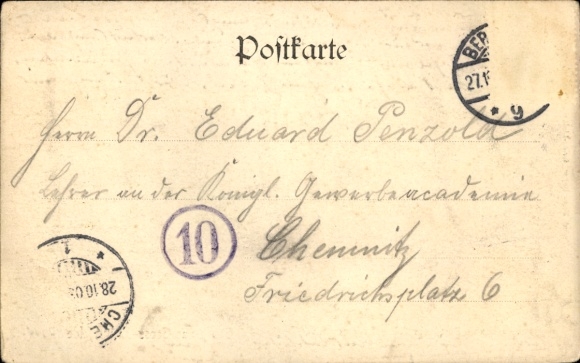 Postkarte
BER
27.1
* 9
Herrn Dr. Eduard Penzold
Lehrer an der Königl. Gewerbeacademie
10
Chemnitz
Friedrichsplatz 6
28.10.0
CHE